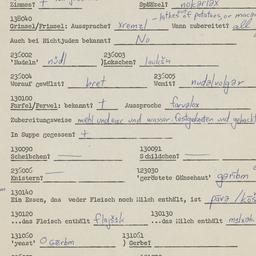 Zimmes? † Spätzel? nokarlax
138040 - latkes of potatoes, or macar
Grimsel/Frimsel: Aussprache? xremzl Wann zubereitet? all
Auch bei Nichtjuden bekannt? No
236002 236003
'Nudeln' nodl )Lokschen? loukšn
236004 236005
Worauf gewälzt? bret Womit? nudlvolgar
130100
Farfel/Fervel: bekannt? † Aussprache farvalax
Zubereitungsweise mehl und eier und wasser festgeladen und gehackt
In Suppe gegessen? †
130090 130091
Scheibchen? Schildchen?
236006 123030
Knistern? 'geröstete Gänsehaut' garibm
130140
Ein Essen, das weder Fleisch noch Milch enthält, ist para / koš
130120 130130
...das Fleisch enthält flajšik ...das Milch enthält
131060 131061
'yeast' ) Gerbe?